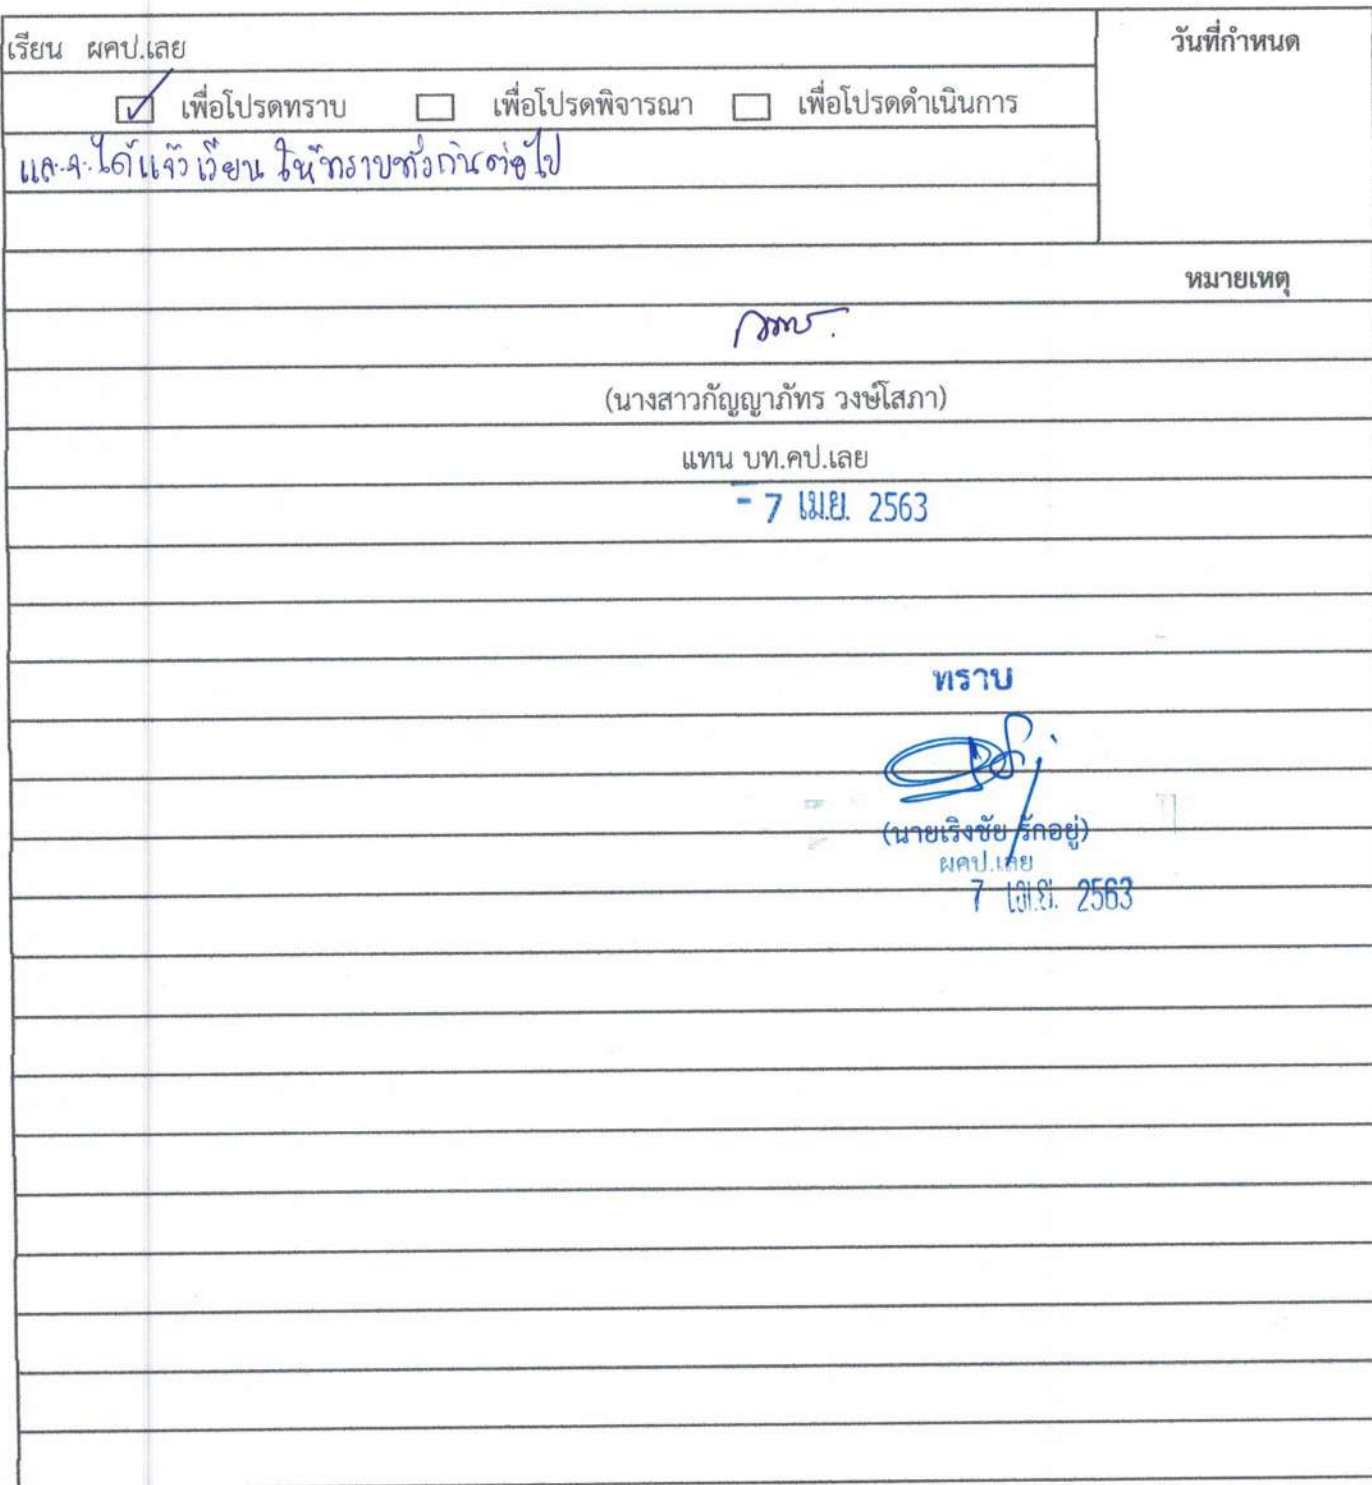 เรียน ผคป.เลย
วันที่กำหนด
เพื่อโปรดทราบ เพื่อโปรดพิจารณา เพื่อโปรดดำเนินการ
และจะได้แจ้งเวียนให้ทราบทั่วกันต่อไป
หมายเหตุ
(นางสาวกัญญาภัทร วงษ์โสภา)
แทน บท.คป.เลย
- 7 เม.ย. 2563
ทราบ
(นายเริงชัย รักอยู่)
ผคป.เลย
7 เม.ย. 2563